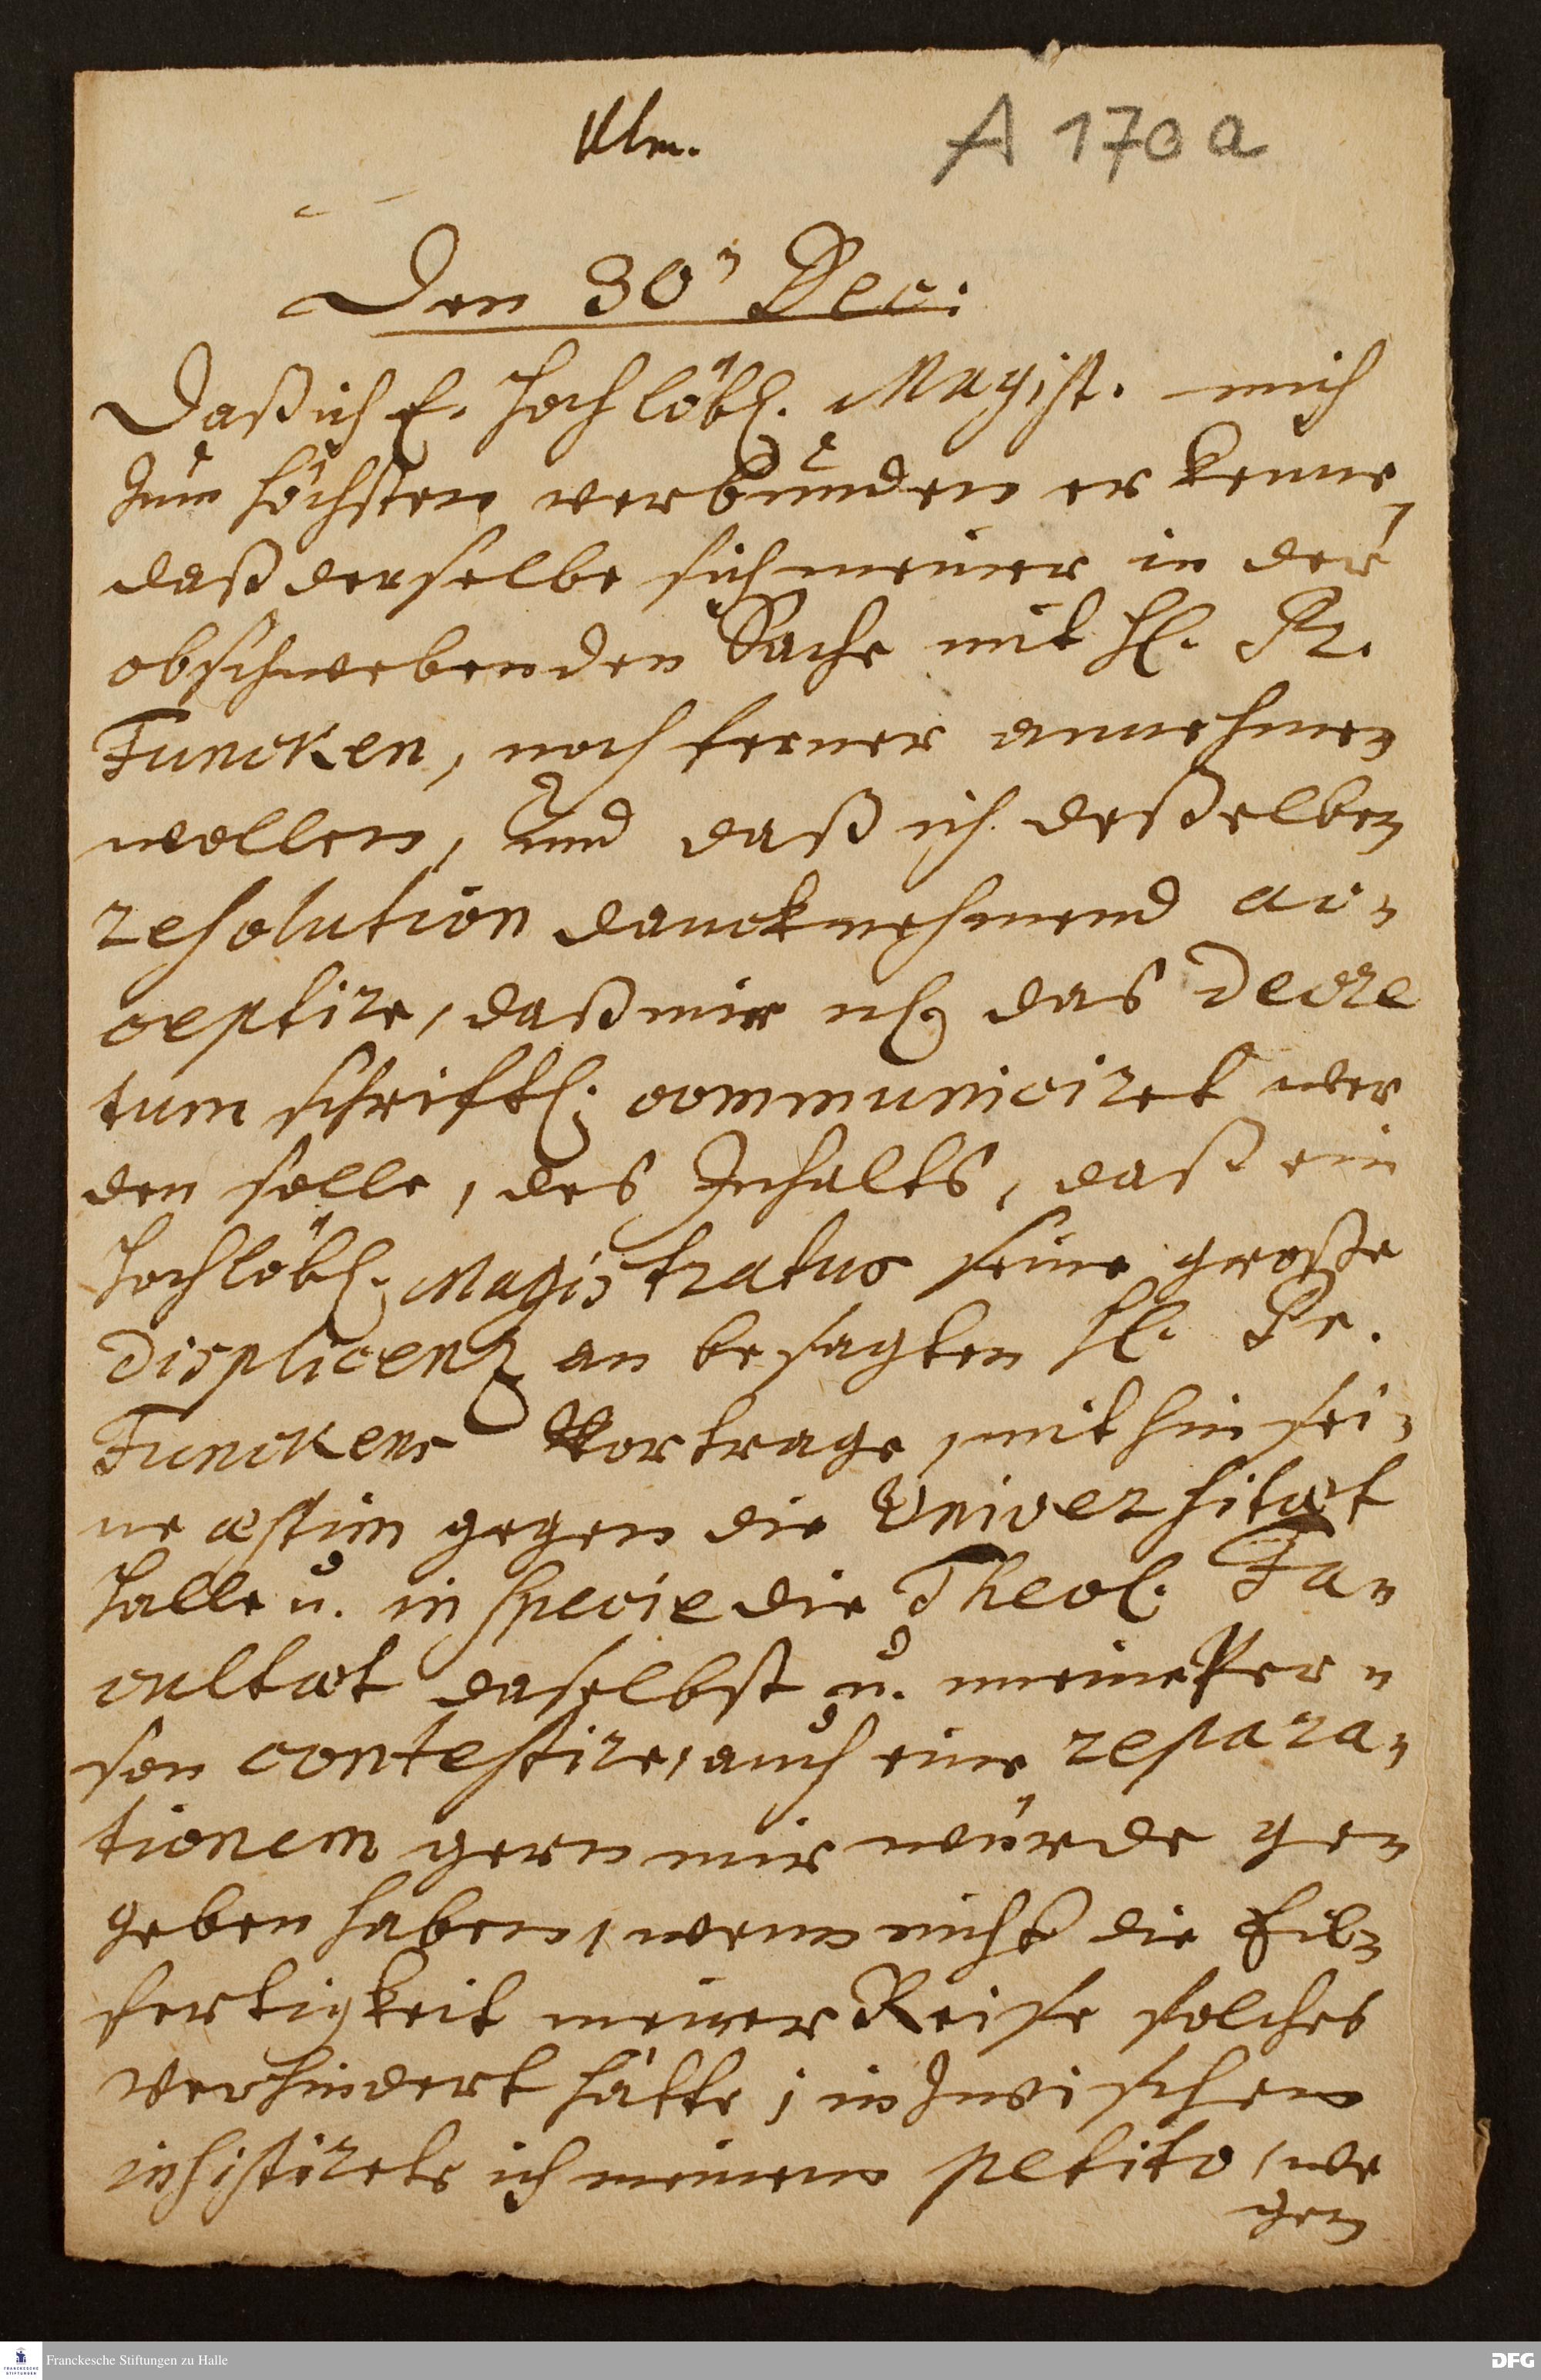 Ulm.
A 170 a
Den 30n Dec:
Daß ich E. Hochlöbl. Magist. mich
zum höchsten verbunden erkenne,
daß derselbe sich meiner in der
obschwebenden Sache mit H. Pr.
Funcken, noch ferner annehmen
wollen, und daß ich deßelben
resolution dancknehmend ac-
ceptire, daß mir nehml. das Decre
tum schriftl. communiciret wer
den solle, des Inhalts, daß ein
Hochlöbl. Magistratus seine große
Displicenz an besagten H. Pr.
Funckens Vortrage, mithin sei-
ne æstim gegen die Universitæt
Halle u. in specie die Theol. Fa-
cultæt daselbst u. meine Per-
son contestire, auch eine repara-
tionem gern mir würde ge-
geben haben, wenn nicht die Eil-
fertigkeit meiner Reise solches
verhindert hätte; inzwischen
insistirete ich meinem petito, we
gen
Franckesche Stiftungen zu Halle
DFG